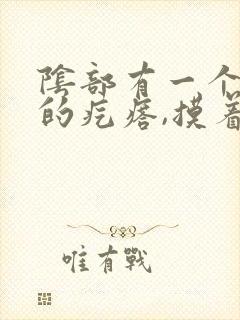 陰部有一个
的疙瘩,摸着
唯有戰